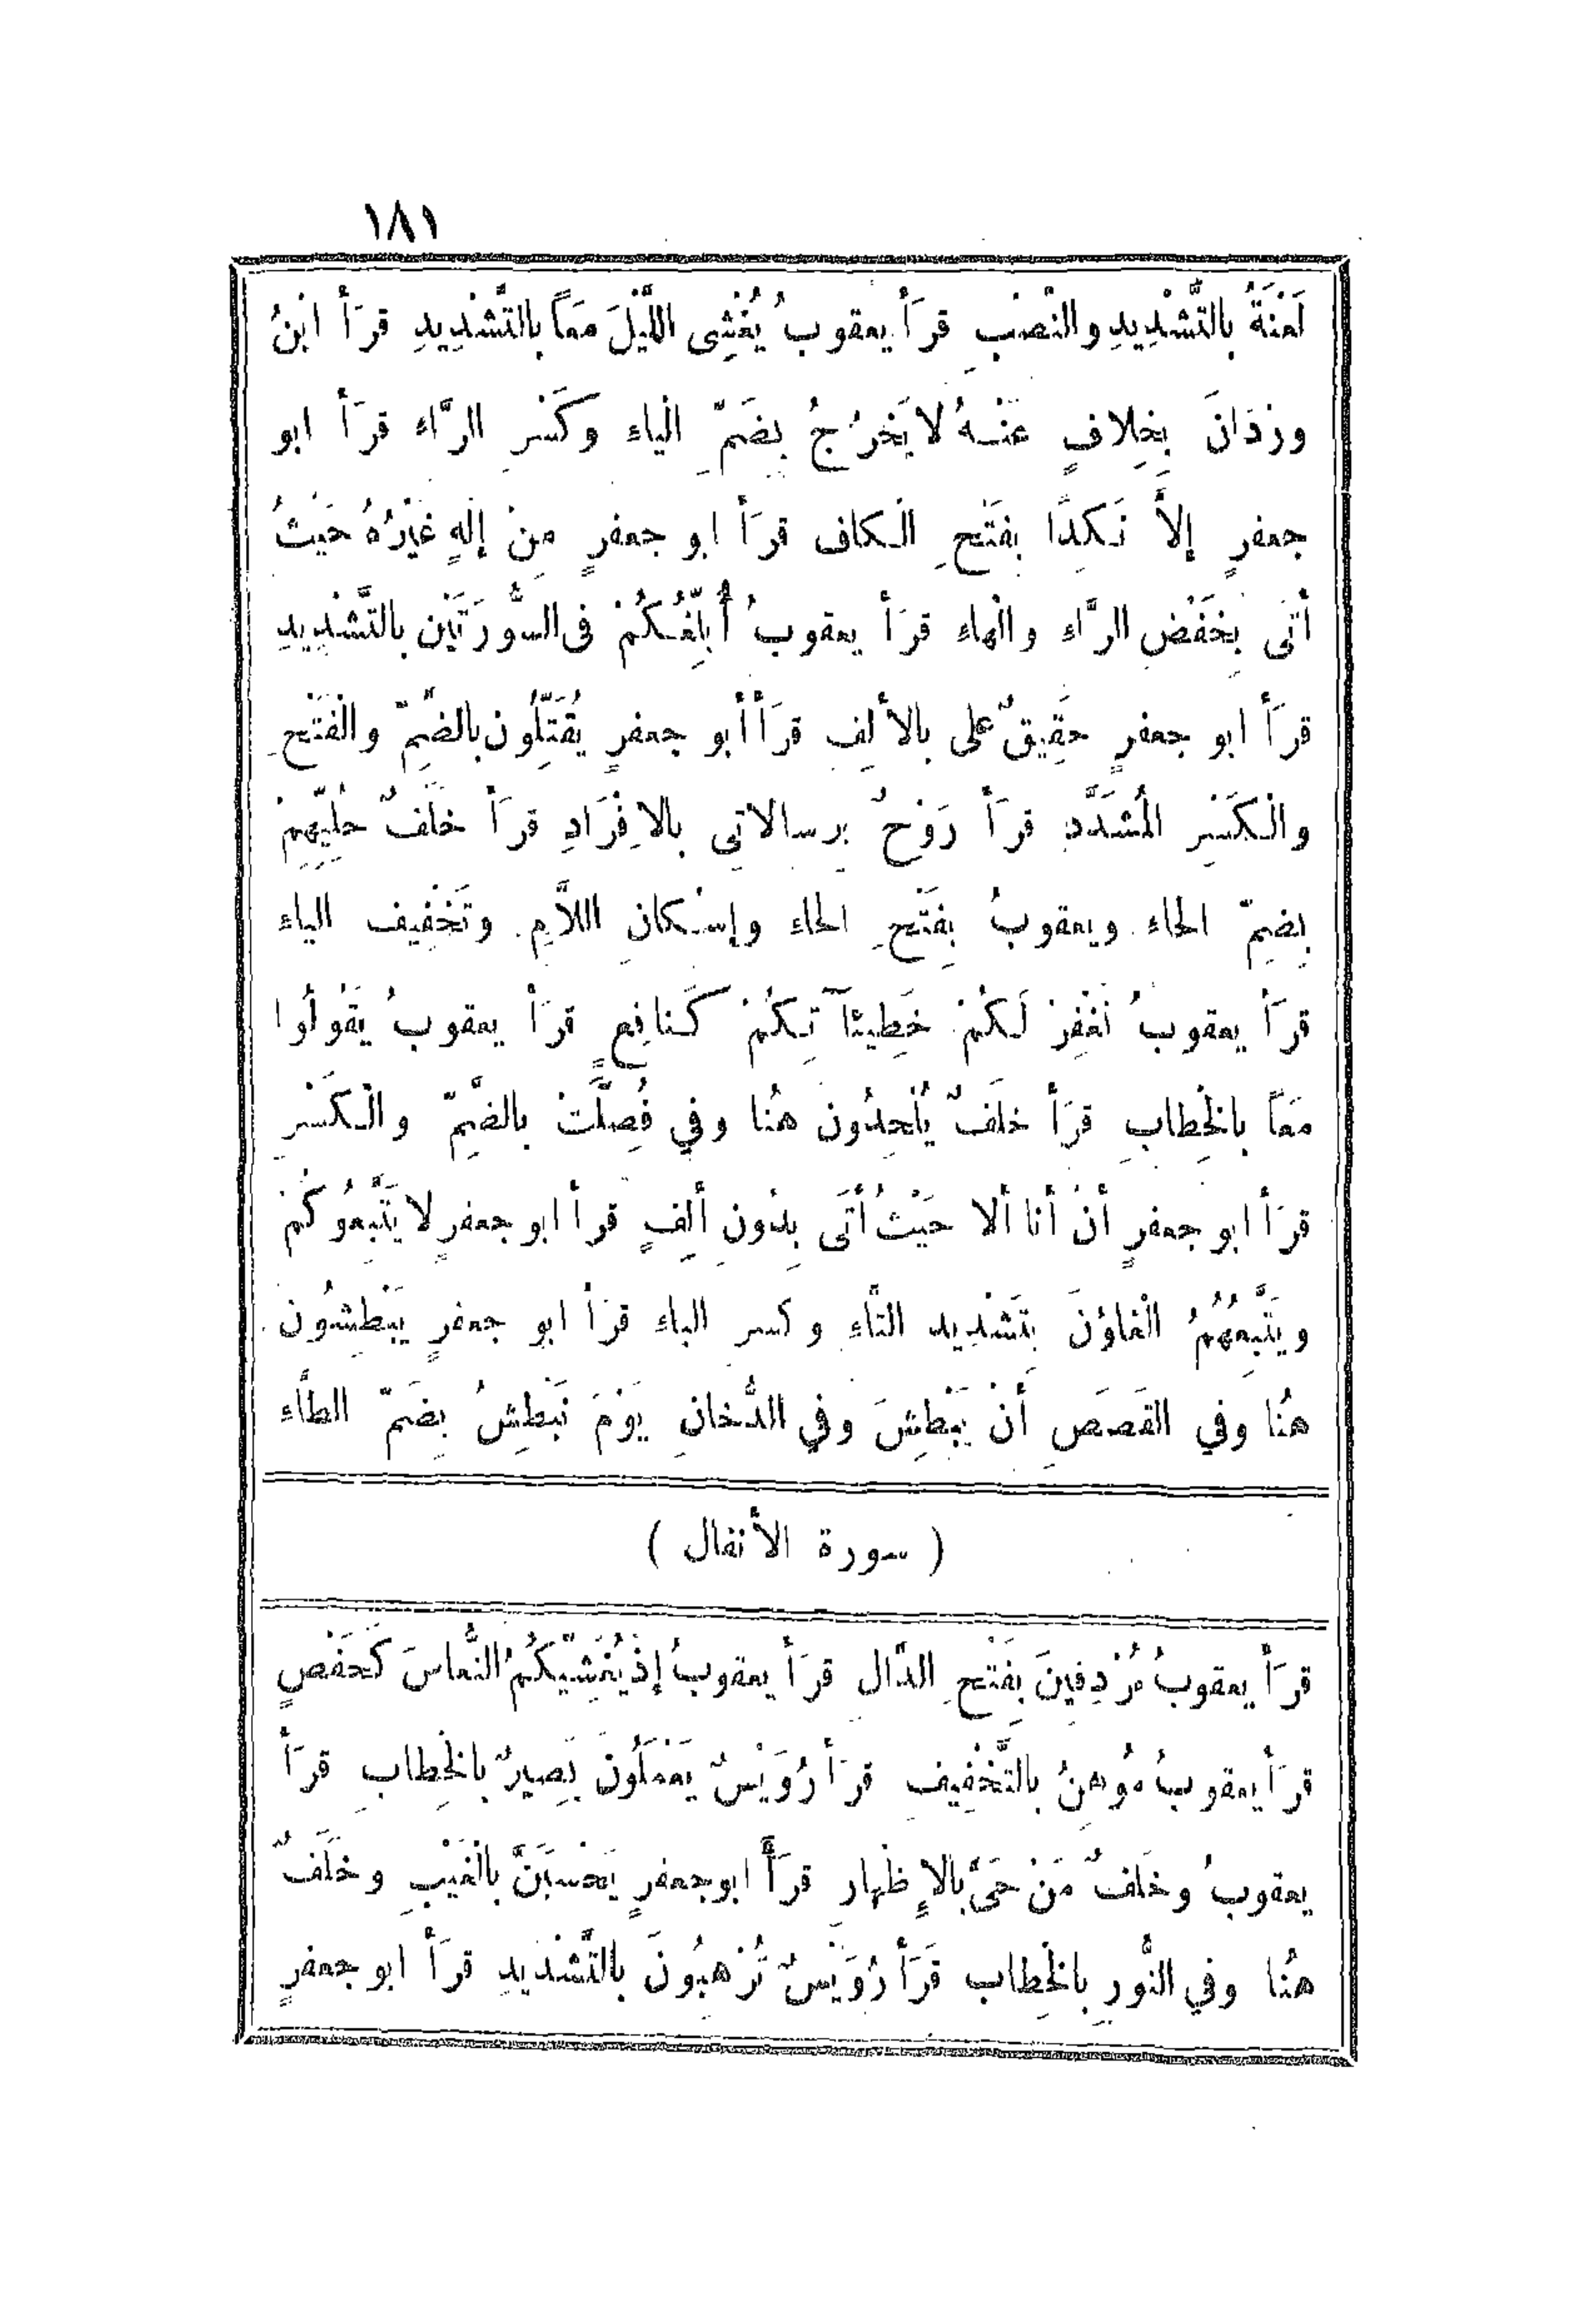 ١٨١
لَعْنَةُ بالتَّشْدِيدِ والنَّصْبِ قرَأَ يعقوبُ يُغْشِى اللَّيْلَ مَعاً بالتَّشْدِيدِ قرَأَ ابْنُ
ورْدَانَ بِخِلافٍ عَنْهُ لا يَخْرُجُ بِضَمِّ الْياءِ وكَسْرِ الرَّاءِ قرَأَ ابو
جعفرٍ إلاَّ نَكِدًا بفَتْحِ الْكاف قرَأَ ابو جعفرٍ مِنْ إلٰهٍ غَيْرُهُ حَيْثُ
أتَى بِخَفْضِ الرَّاءِ والْهاءِ قرَأَ يعقوبُ أُبَلِّغُكُمْ فى السُّورَتَيْنِ بالتَّشْدِيدِ
قرَأَ ابو جعفرٍ حَقِيقٌ على بالألِفِ قرَأَ أبو جعفرٍ يُقَتِّلُون بالضَّمِّ والْفَتْحِ
والْكَسْرِ الْمُشَدَّدِ قرَأَ رَوْحٌ بِرسالاتِى بالاِفْرَادِ قرَأَ خلَفٌ حُلِيِّهِمْ
بِضمِّ الحاء ويعقوبُ بِفَتْحِ الحاء وإسْكانِ اللاَّمِ وتَخْفِيف الياءِ
قرَأَ يعقوبُ نَغْفِرْ لَكُمْ خَطِيئاَتِكُمْ كَنافِعٍ قرَأَ يعقوبُ يَقُولُوا
مَعاً بالْخِطابِ قرَأَ خلَفٌ يُلْحِدُون هُنا وفي فُصِّلَتْ بالضَّمِّ والْكَسْرِ
قرَأَ ابو جعفرٍ أنْ أنا ألا حَيْثُ أتَى بِدُونِ ألِفٍ قرأ ابو جعفرٍ لا يَتَّبِعُوكُمْ
ويَتَّبِعُهُمُ الْغاوُنَ بتَشْدِيد التَّاءِ وكسر الباءِ قرَأ ابو جعفرٍ يَبْطِشُون
هُنا وفي القَصَصِ أَنْ يَبْطِشَ وفي الدُّخانِ يَوْمَ نَبْطِشُ بِضَمِّ الطَّاءِ
( سورة الأنفال )
قرَأَ يعقوبُ مُرْدِفِينَ بِفَتْحِ الدَّال قرَأَ يعقوبُ إذْ يُغَشِّيكُمُ النُّعاسَ كَحَفْصٍ
قرَأَ يعقوبُ مُوهِنُ بالتَّخْفِيفِ قرَأَ رُوَيْسٌ يَعْمَلُونَ بَصِيرٌ بالْخِطابِ قرَأَ
يعقوبُ وخلَفٌ مَنْ حَىَّ بالإِظْهارِ قرَأَ ابوجعفرٍ يَحْسَبَنَّ بالْغَيْبِ وخلَفٌ
هُنا وفي النُّورِ بالْخِطاب قَرَأَ رُوَيْسٌ تُرَهِبُونَ بالتَّشْدَيدِ قرَأَ ابو جعفرٍ